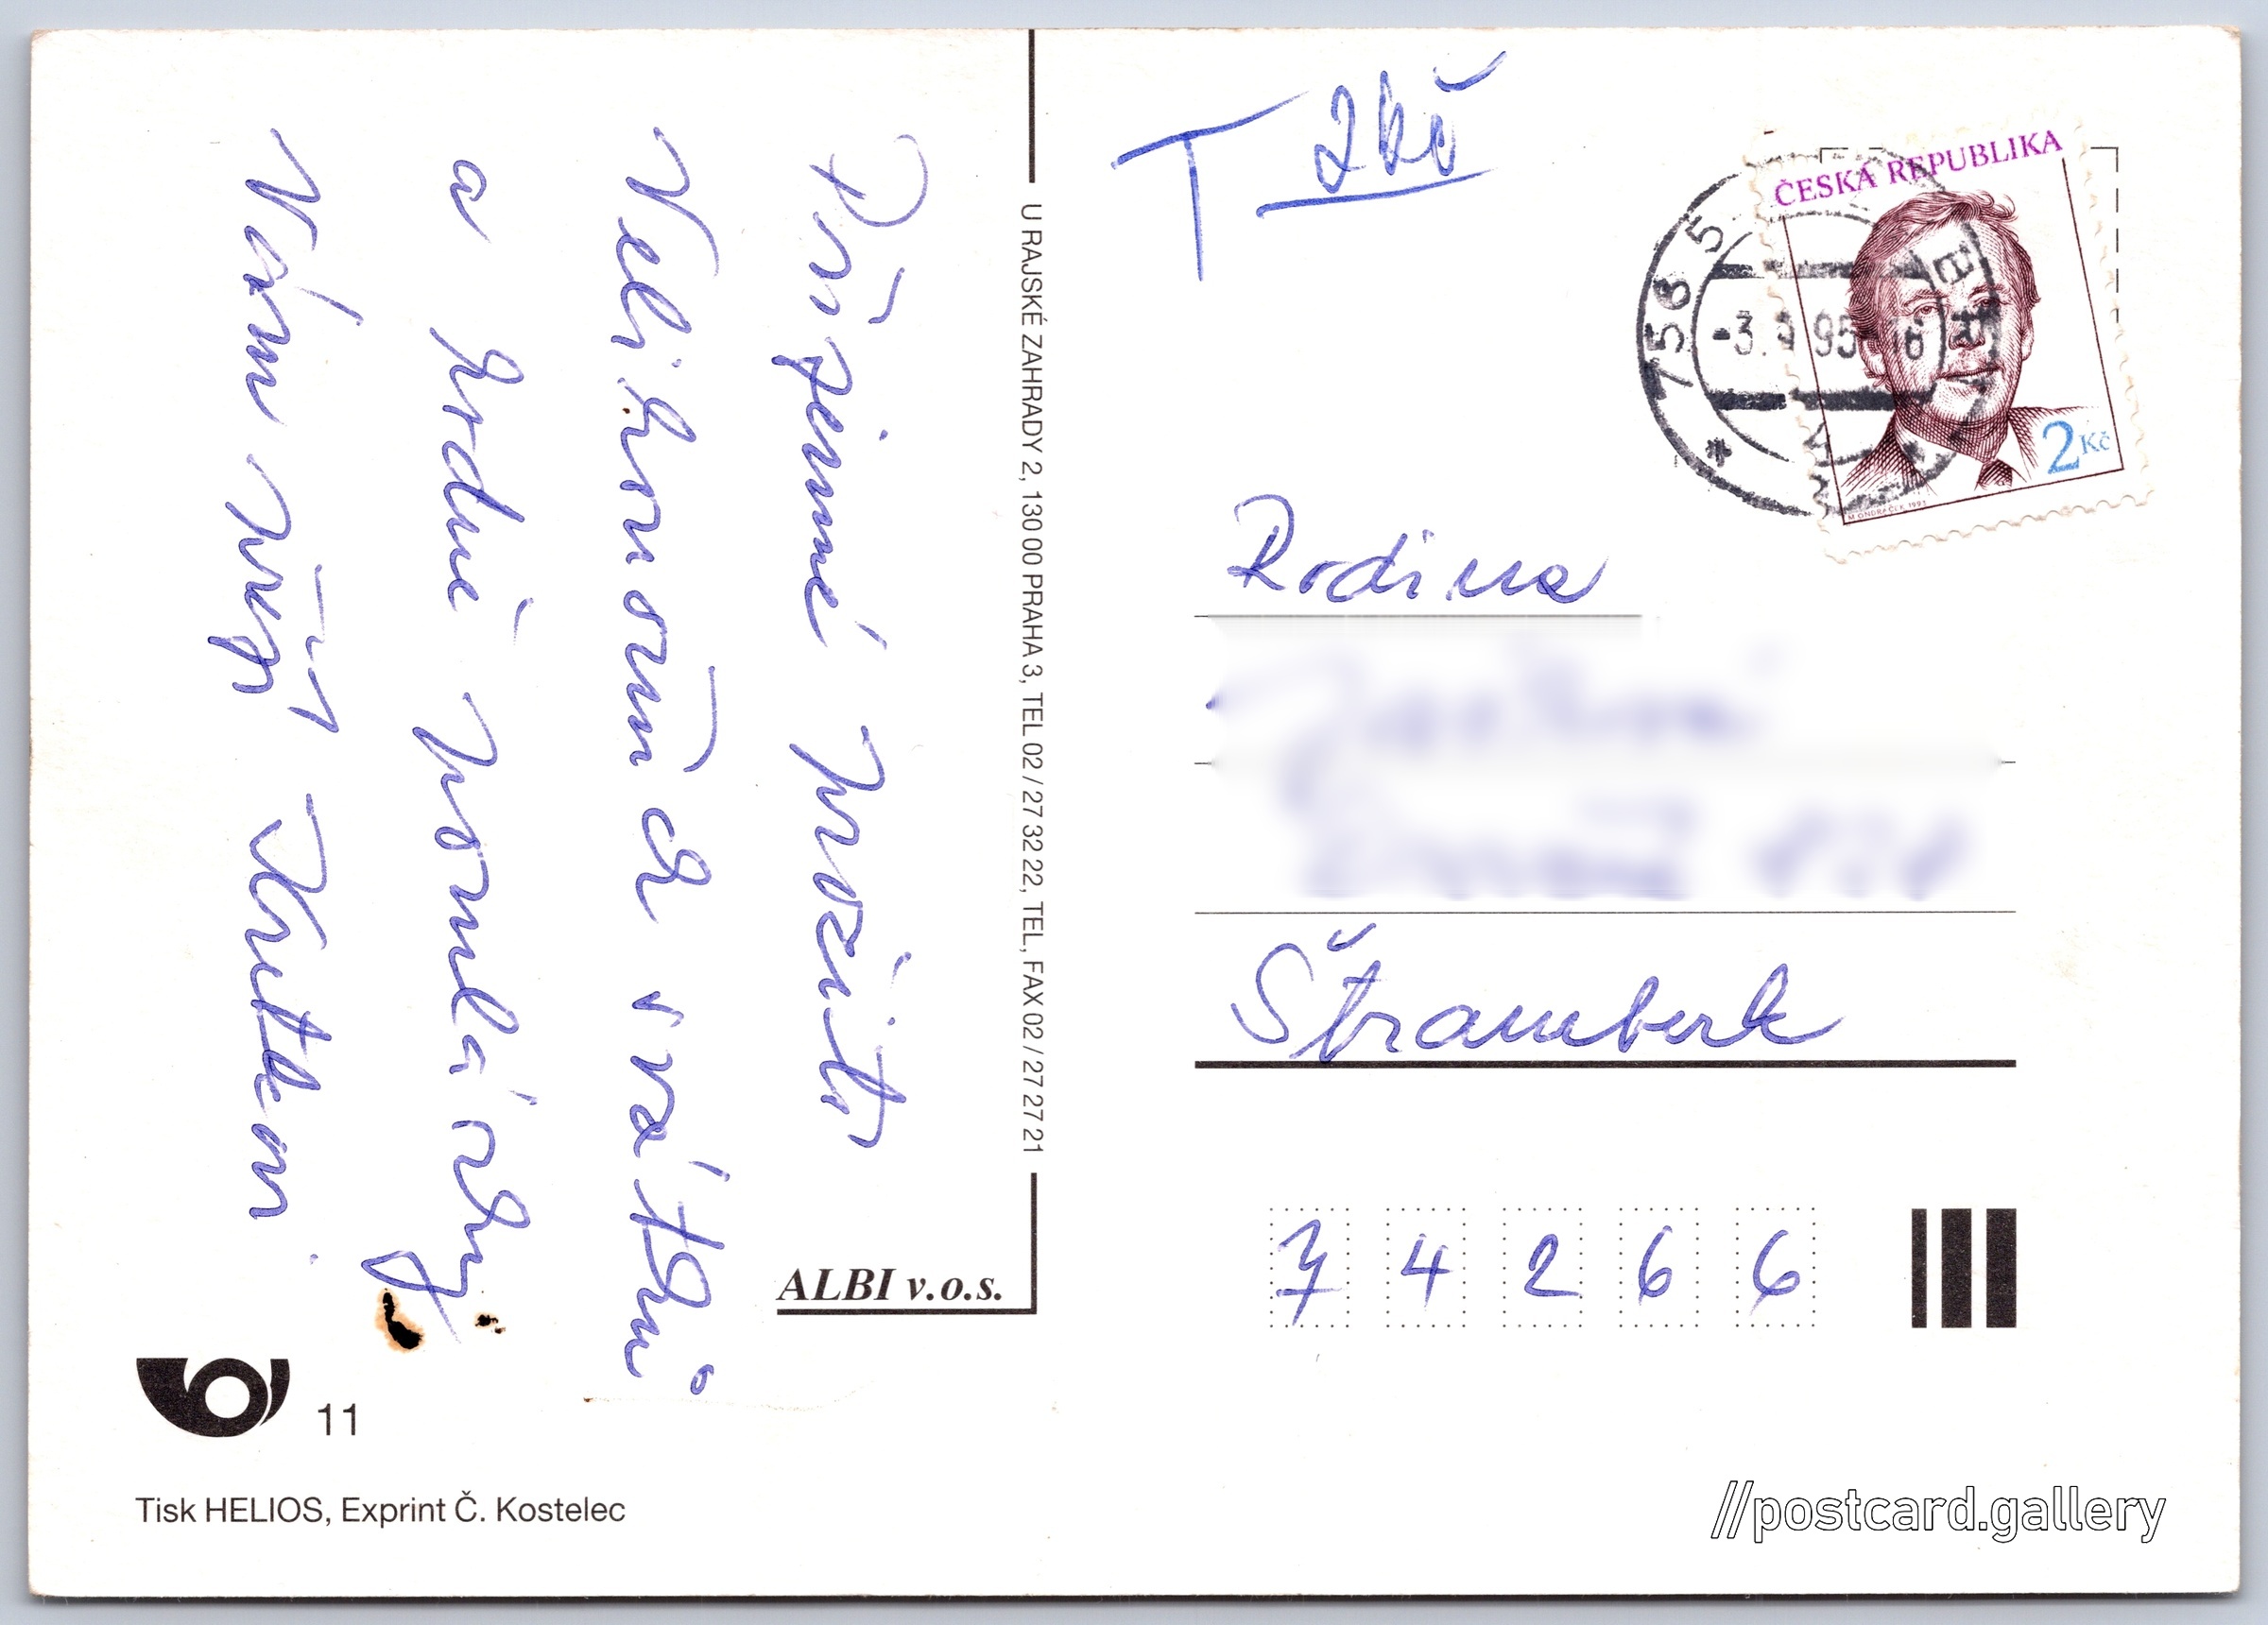 Příjemné prožití
Velikonočních svátků
a hodně pomlázky
Vám všem
T 2Kč
ČESKÁ REPUBLIKA
2Kč
756 5
-3. 95
M ONDRÁČEK 1993
U RAJSKÉ ZAHRADY 2, 130 00 PRAHA 3, TEL 02 / 27 32 22, TEL, FAX 02 / 27 27 21
ALBI v.o.s.
Rodina
Štramberk
7 4 2 6 6
11
Tisk HELIOS, Exprint Č. Kostelec
//postcard.gallery